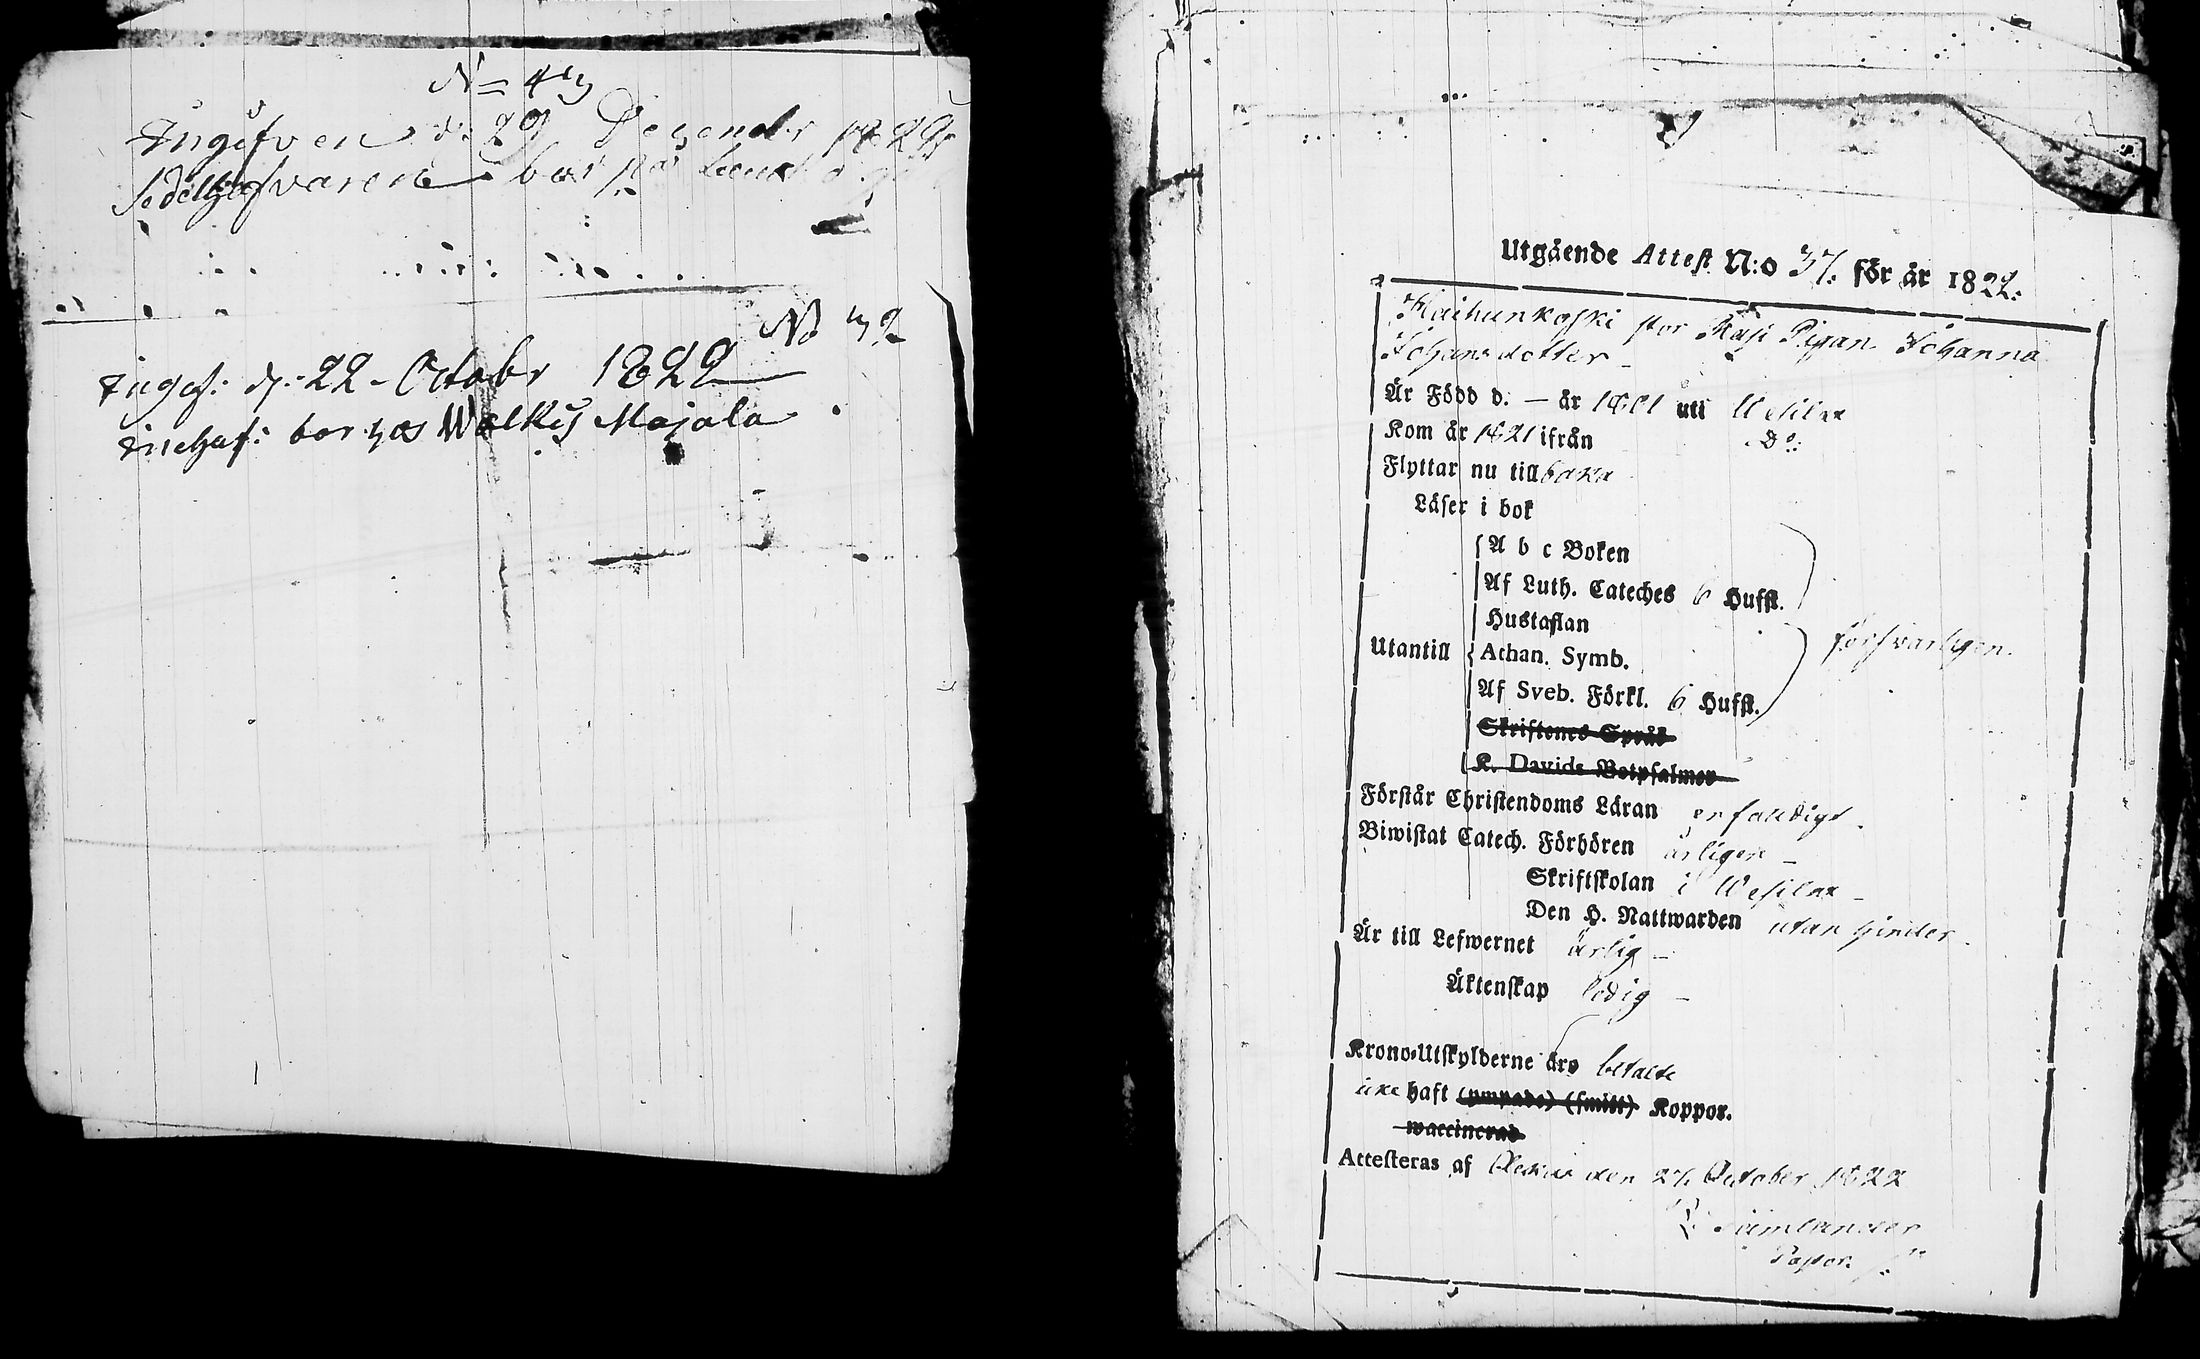 N= 43
Ingifven d: 29 Decembr 1822
Sedelhafvaren bor på
No 32
Ingif: d: 22 - Octobr 1822
Innehaf: bor hos Walkis Majala
Utgående Attest N:o 37. för år 1822.
Haihunkoski stor Pigan Johanna
Johansdotter
Är Född d. — år 1801 uti Wesilax
Kom år 1821 ifrån Do:
Flyttar nu till baka
Läser i bok
A b c Boken
Af Luth. Cateches 6 Hufst.
Hustaflan
Utantill Athan. Symb. försvarligen.
Af Sveb. Förkl. 6 Hufst.
Skriftenes Språk
K. Davids Botpsalmer
Förstår Christendoms Läran enfaldigt.
Biwistat Catech. Förhören årligen —
Skriftskolan i Wesilax —
Den H. Nattwarden utan hinder.
Är till Lefwernet ärlig —
Äktenskap ledig —
Krono-Utskylderne äro betalte
icke haft (ympade) (smitt) Koppor.
waccinerad
Attesteras af den 21 October 1822
Pastor.